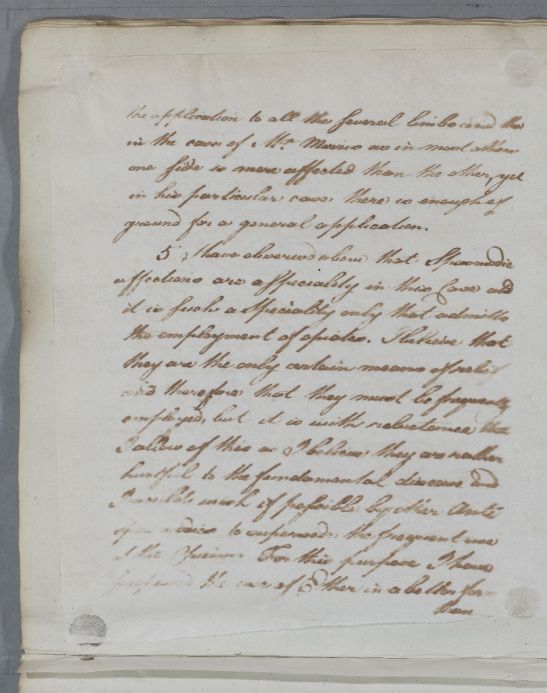 the application to all the several limbs and tho
in the case of Mr. Marino as in most others
one side is more affected than the other, yet
in his particular case there is enough of
ground for a general application.
5 I have observed above that Spasmodic
affections are a Speciality in this Case and
it is such a Speciality only that admitts
the employment of opiates. I believe that
they are the only certain means of relief
and therefore that they must be frequently
employed, but it is with reluctance that
I allow of this as I believe they are rather
hurtful to the fundamental disease and
I would wish if possible by other Anti
spasmodics to supersede the frequent use
of the Opium. For this purpose I have
proposed the use of Ether in a better form
than